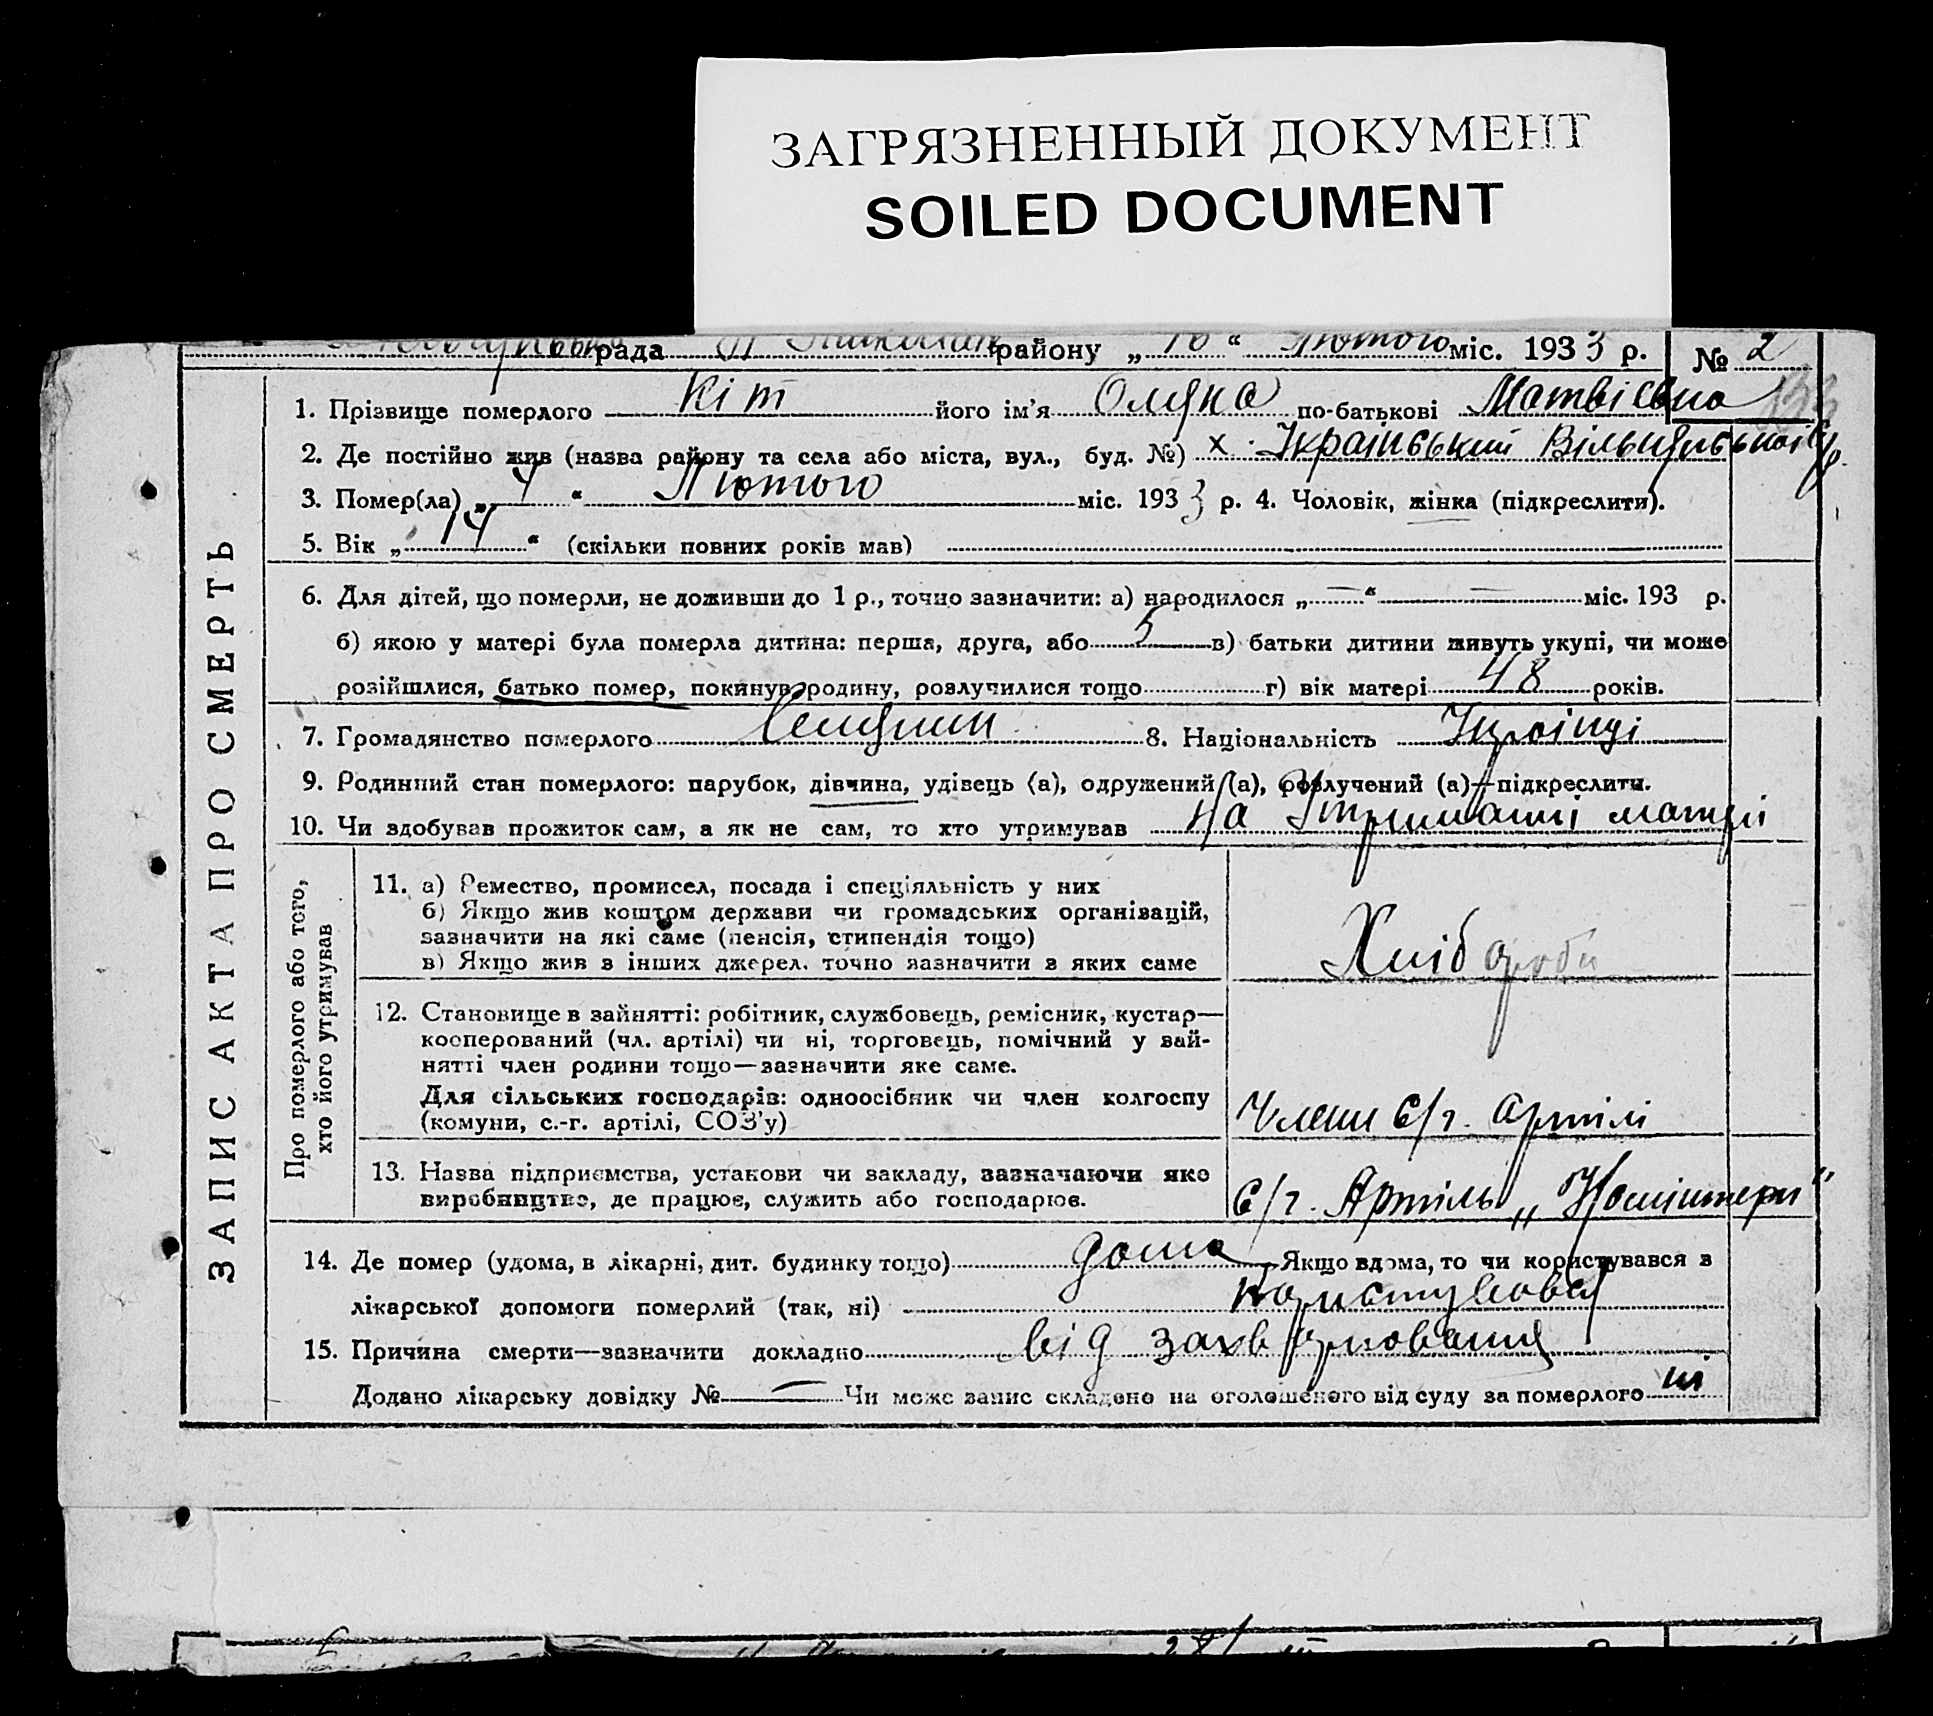 ЗАГРЯЗНЕННЫЙ ДОКУМЕНТ
SOILED DOCUMENT
рада району „ 10 “ Лютого міс. 1933 р. № 2
ЗАПИС АКТА ПРО СМЕРТЬ
1. Прізвище померлого Кіт його ім'я Оляна по-батькові Матвієвна
2. Де постійно жив (назва району та села або міста, вул., буд. №) х. Український
3. Помер(ла) „ 4 “ Лютого міс. 1933 р. 4. Чоловік, жінка (підкреслити).
5. Вік „ 14 “ (скільки повних років мав)
6. Для дітей, що померли, не доживши до 1 р., точно зазначити: а) народилося „ — “ — міс. 193 р.
б) якою у матері була померла дитина: перша, друга, або 5 в) батьки дитини живуть укупі, чи може
розійшлися, батько помер, покинув родину, розлучилися тощо г) вік матері 48 років.
7. Громадянство померлого 8. Національність Українці
9. Родинний стан померлого: парубок, дівчина, удівець (а), одружений (а), розлучений (а)—підкреслити.
10. Чи здобував прожиток сам, а як не сам, то хто утримував На Утриманні матері
Про померлого або того,
хто його утримував
11. а) Ремество, промисел, посада і спеціяльність у них
б) Якщо жив коштом держави чи громадських організацій,
зазначити на які саме (пенсія, стипендія тощо)
в) Якщо жив з інших джерел, точно зазначити з яких саме
Хлібороби
12. Становище в зайнятті: робітник, службовець, ремісник, кустар—
кооперований (чл. артілі) чи ні, торговець, помічний у зай-
нятті член родини тощо—зазначити яке саме.
Для сільських господарів: одноосібник чи член колгоспу
(комуни, с.-г. артілі, СОЗ'у)
Члени С/г. артілі
13. Назва підприємства, установи чи закладу, зазначаючи яке
виробництво, де працює, служить або господарює.
С/г. Артіль „Комінтерн"
14. Де помер (удома, в лікарні, дит. будинку тощо) дома Якщо вдома, то чи користувався з
лікарської допомоги померлий (так, ні) користувався
15. Причина смерти—зазначити докладно від захворювання
Додано лікарську довідку № — Чи може запис складено на оголошеного від суду за померлого ні